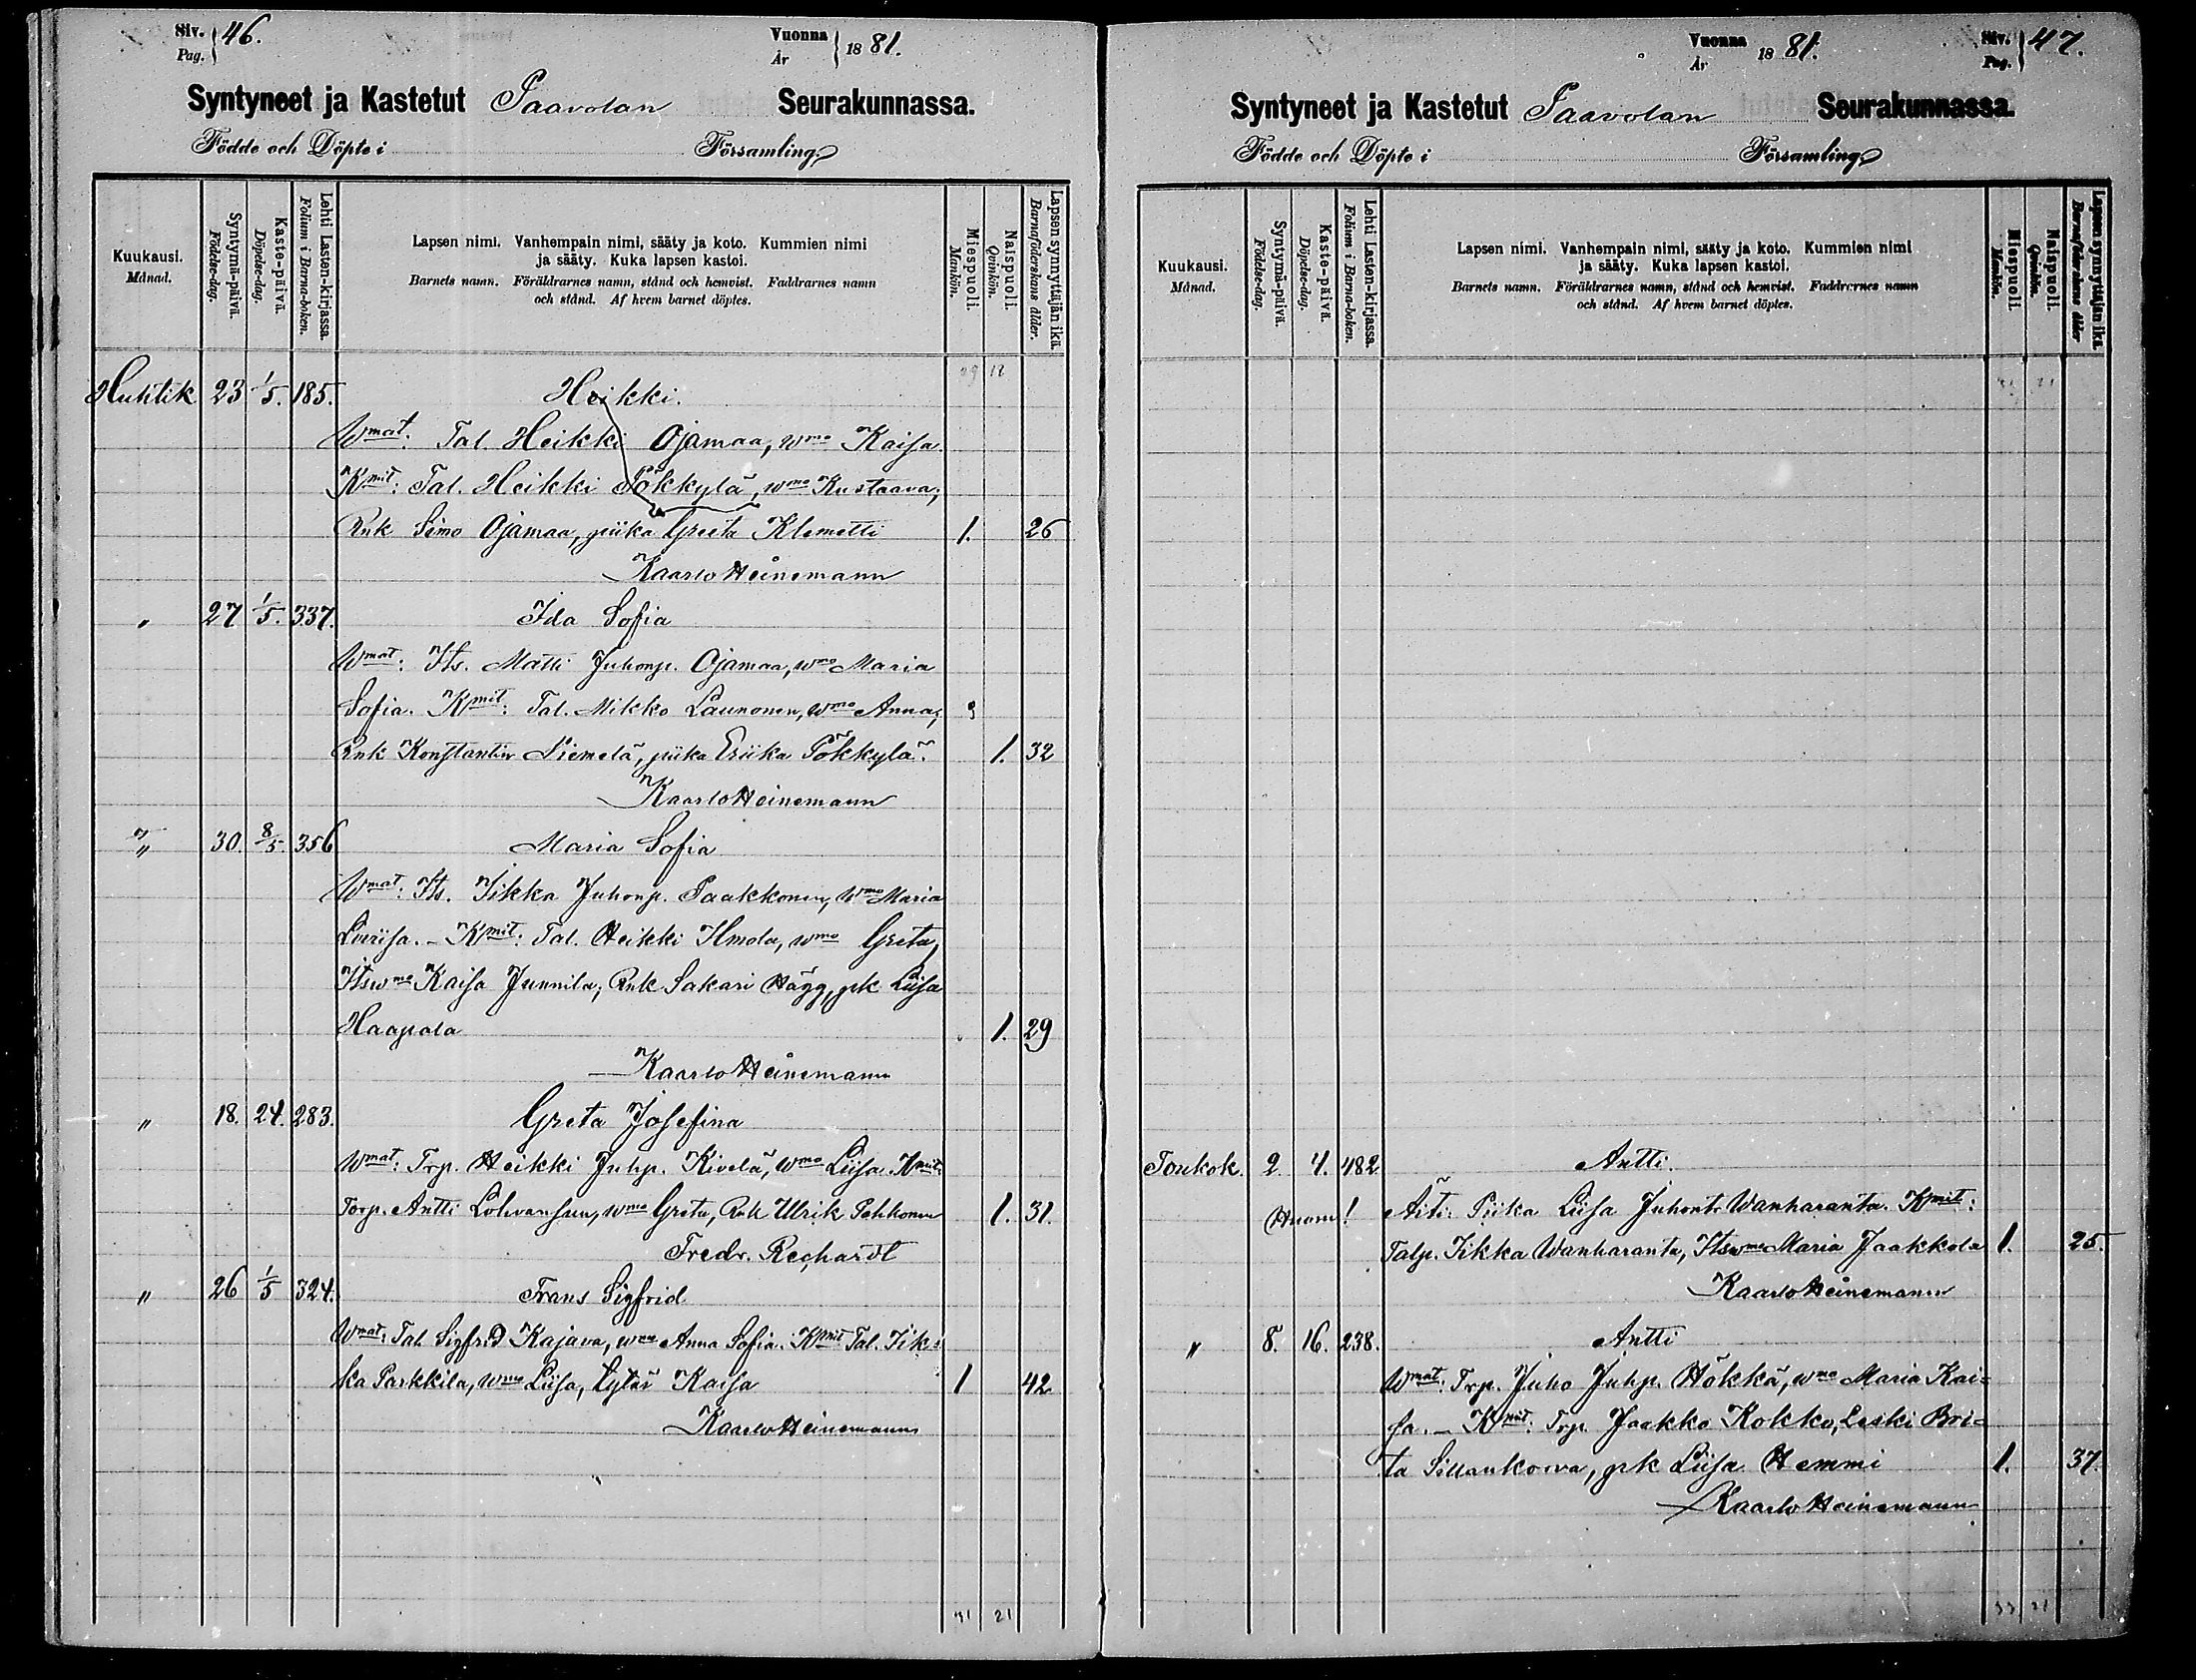 Siv. Pag. 46.
Vuonna År 1881.
Syntyneet ja Kastetut Paavolan Seurakunnassa.
Födde och Döpte i Församling
Kuukausi. Månad.
Syntymä-päivä. Födelse-dag.
Kaste-päivä. Döpelse-dag.
Lehti Lasten-kirjassa. Folium i Barna-boken.
Lapsen nimi. Vanhempain nimi, sääty ja koto. Kummien nimi
ja sääty. Kuka lapsen kastoi.
Barnets namn. Föräldrarnes namn, stånd och hemvist. Faddrarnes namn
och stånd. Af hvem barnet döptes.
Miespuoli. Mankön.
Naispuoli. Qvinkön.
Lapsen synnyttäjän ikä. Barnaföderskans ålder.
29 18
Huhtik 23 1/5. 185. Heikki.
Wmat. Tal. Heikki Ojamaa, wmo Kaisa.
Kmit: Tal. Heikki Pökkylä, wmo Kustaava;
Rnk Simo Ojamaa, piika Greeta Klemetti 1. 26
Kaarlo Heinemann
" 27 1/5. 337. Ida Sofia
Wmat: Its. Matti Juhonp. Ojamaa, wmo Maria
Sofia. Kmit: Tal. Mikko Launonen, wmo Anna;
Rnk Konstantin Niemelä, piika Eriika Pökkylä. 1. 32
Kaarlo Heinemann
" 30. 8/5. 356 Maria Sofia
Wmat: Its. Iikka Juhonp. Paakkonen, Wmo Maria
Lovisa. - Kmit: Tal. Heikki Ilmola, wmo Greta,
Itswmo Kaisa Junnila; Rnk Sakari Hägg, pk Liisa
Haapala 1. 29
Kaarlo Heinemann
" 18. 24. 283. Greta Josefina
Wmat: Trp. Heikki Juhp. Kivelä, wmo Liisa. Kmit:
Torp. Antti Lohvansuu, wmo Greta, Rnk Ulrik Pehkonen 1. 31.
Fredr. Rechardt
" 26 1/5 324. Frans Sigfrid
Wmat: Tal. Sigfrid Kajava, wmo Anna Sofia. Kmit Tal. Iik=
ka Parkkila, wmo Liisa, tytär Kaisa 1 42
Kaarlo Heinemann
31 21
Vuonna År 1881.
Siv. Pag. 47.
Syntyneet ja Kastetut Paavolan Seurakunnassa.
Födde och Döpte i Församling
Kuukausi. Månad.
Syntymä-päivä. Födelse-dag.
Kaste-päivä. Döpelse-dag.
Lehti Lasten-kirjassa. Folium i Barna-boken.
Lapsen nimi. Vanhempain nimi, sääty ja koto. Kummien nimi
ja sääty. Kuka lapsen kastoi.
Barnets namn. Föräldrarnes namn, stånd och hemvist. Faddrarnes namn
och stånd. Af hvem barnet döptes.
Miespuoli. Mankön.
Naispuoli. Qvinkön.
Lapsen synnyttäjän ikä. Barnaföderskans ålder
31 21
Toukok. 2. 4. 482. Antti.
Huom! Äiti: Piika Liisa Juhontr Wanharanta. Kmit:
Talp. Iikka Wanharanta, Itswmo Maria Jaakkola 1. 25.
Kaarlo Heinemann
" 8. 16. 238. Antti
Wmat: Trp. Juho Juhp. Hökkä, wmo Maria Kai=
sa. - Kmit: Trp. Jaakko Kokko, Leski Bri=
ta Sillankorva, pk Liisa Hemmi 1. 37.
Kaarlo Heinemann
33 21